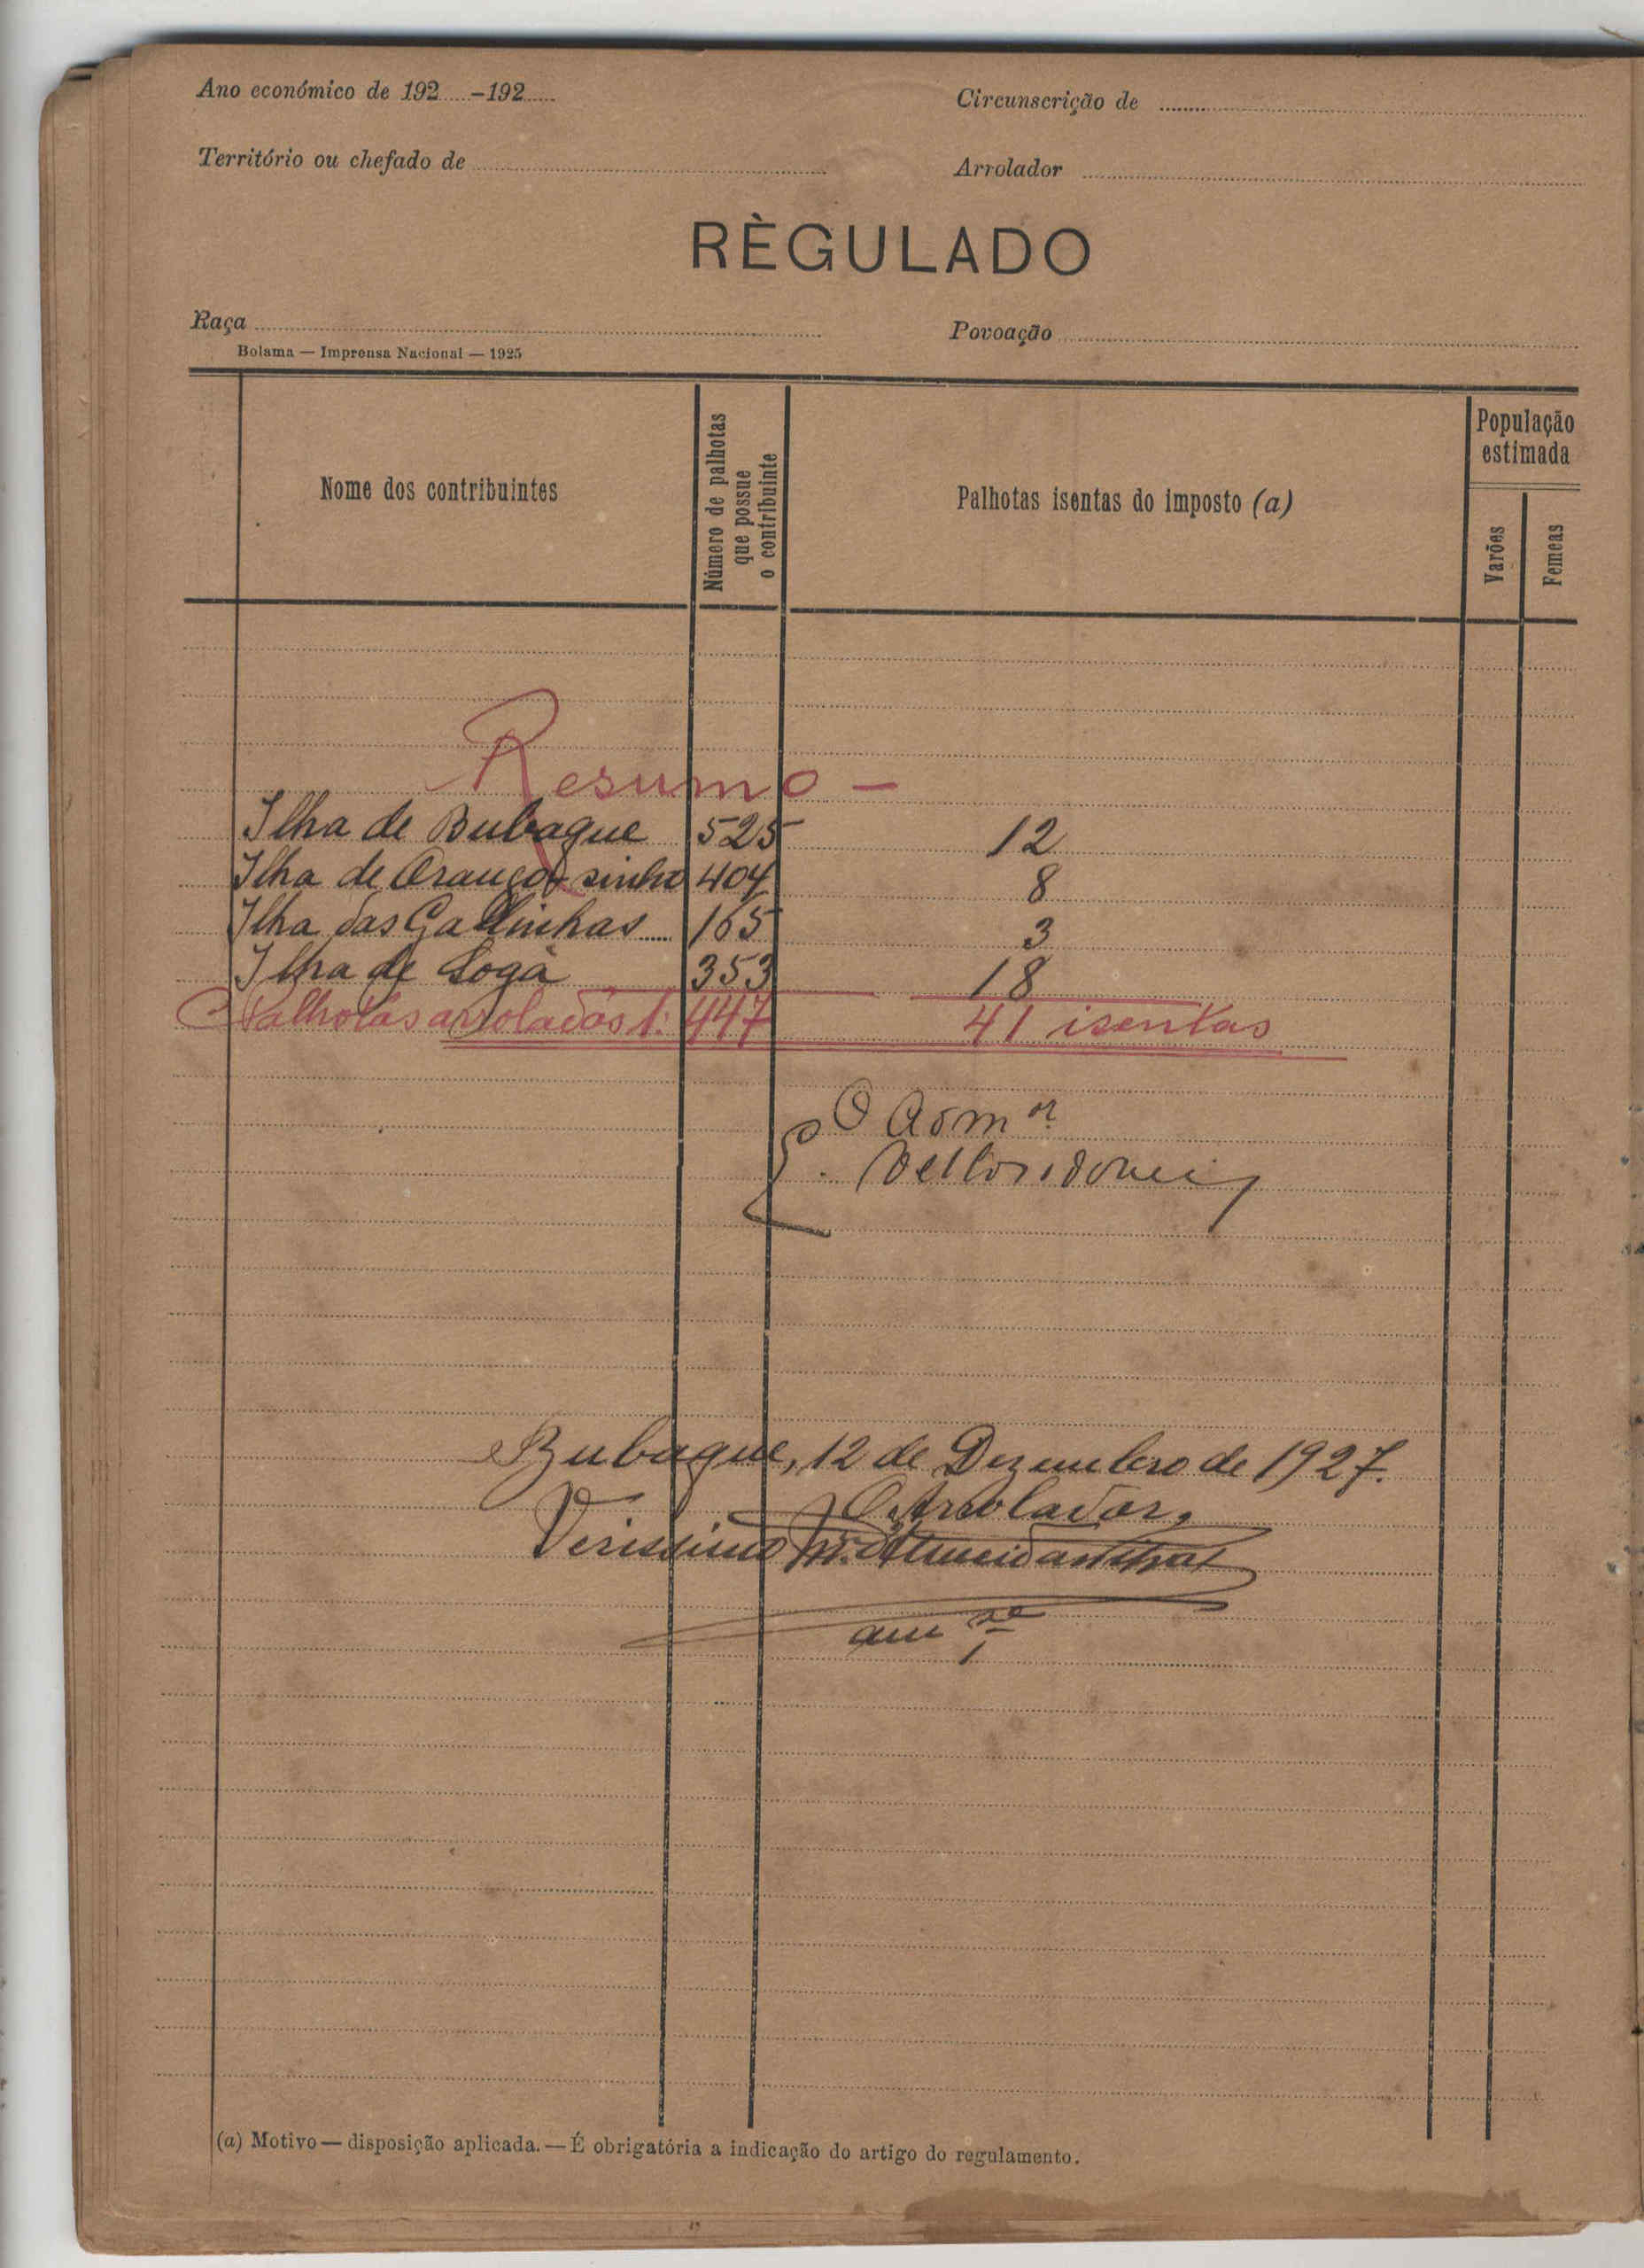 Ano económico de 192.....-192.....
Circunscrição de
Território ou chefado de
Arrolador
RÈGULADO
Raça
Povoação
Bolama — Imprensa Nacional — 1925
Nome dos contribuintes
Número de palhotas
que possue
o contribuinte
Palhotas isentas do imposto (a)
População
estimada
Varões
Femeas
Resumo —
Ilha de Bubaque 525 12
Ilha de Orango sinho 404 8
Ilha das Gallinhas 165 3
Ilha de Sogà 353 18
Palhotas arroladas 1.447 41 isentas
O Adm.or
Bubaque, 12 de Dezembro de 1927.
O Arrolador,
Verissimo
(a) Motivo — disposição aplicada. — É obrigatória a indicação do artigo do regulamento.